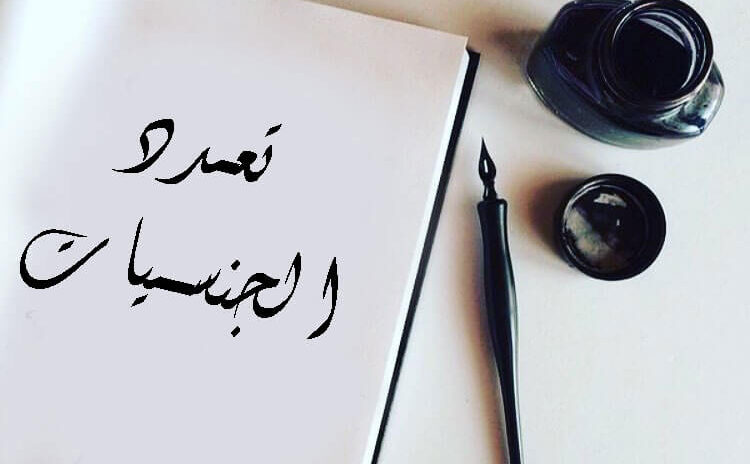 تعدد
الجنسيات